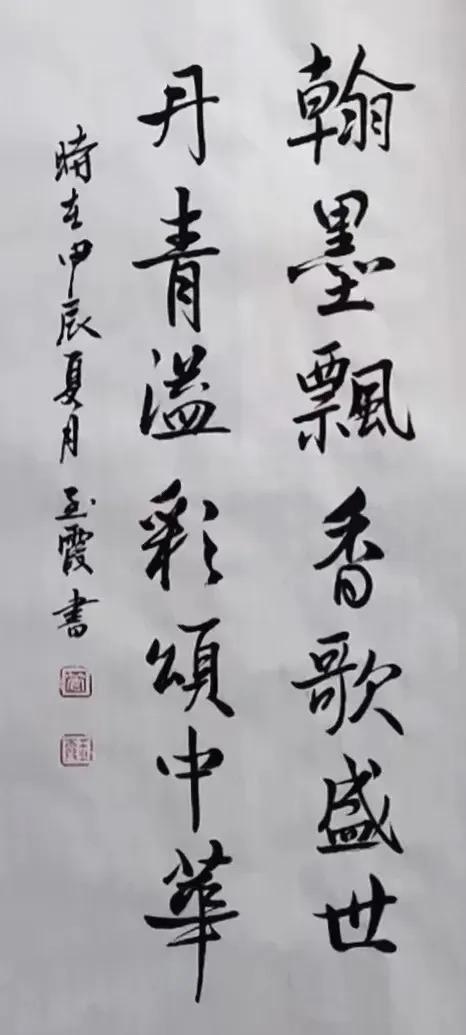 翰墨飄香歌盛世
丹青溢彩頌中華
時在甲辰夏月玉霞書